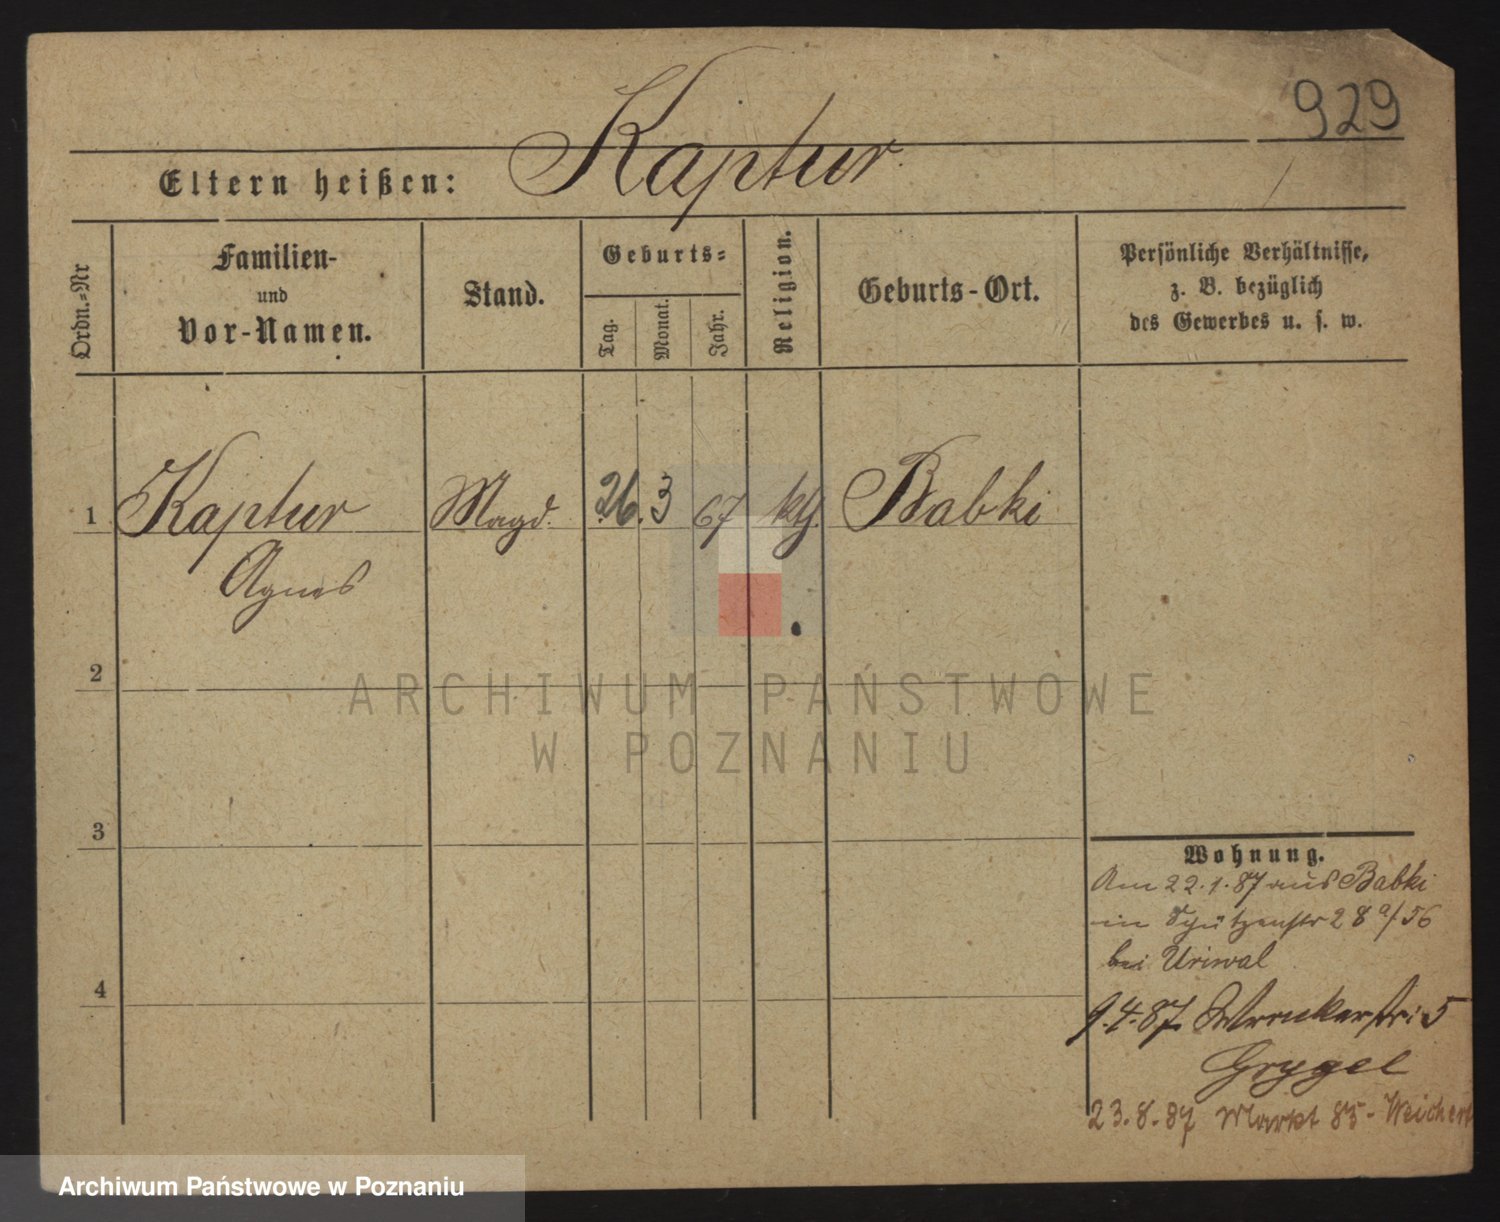 929
Kaptur
Eltern heißen:
Ordn.=Nr
Familien-
und
Vor-Namen.
Stand.
Geburts=
Tag.
Monat.
Jahr.
Religion.
Geburts-Ort.
Persönliche Verhältnisse,
z. B. bezüglich
des Gewerbes u. s. w.
1 Kaptur Magd. 26. 3 67 kth. Babki
Agnes
2
ARCHIWUM PAŃSTWOWE
W POZNANIU
3
Wohnung.
Am 22.1.87 aus Babki
in Schützenstr 28a/56
bei Uriwal
4
9.4.87. Wronkerstr: 5
Grygel
23.8.87 Markt 85- Weichert
Archiwum Państwowe w Poznaniu